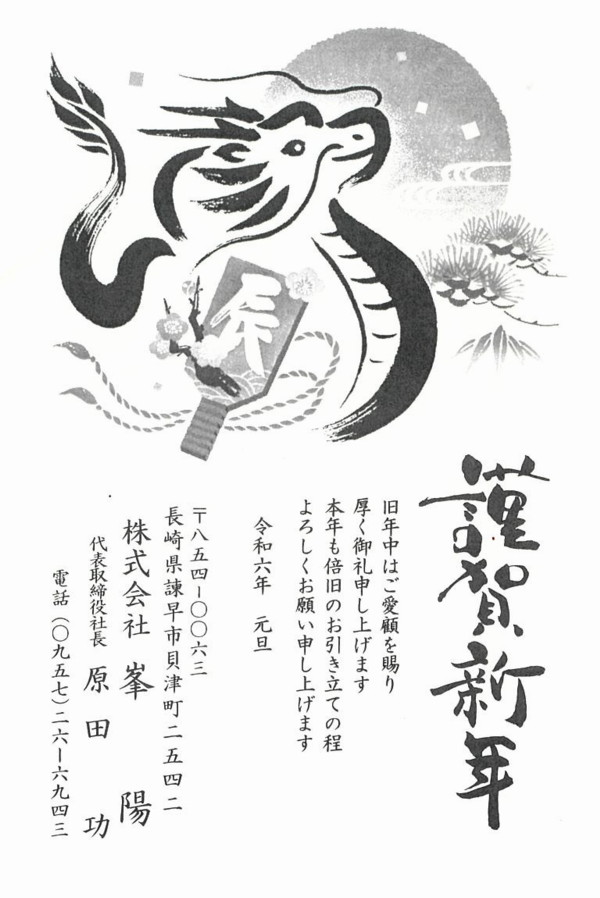 謹賀新年
旧年中はご愛顧を賜り
厚く御礼申し上げます
本年も倍旧のお引き立ての程
よろしくお願い申し上げます
令和六年　元旦
〒八五四-〇〇六三
長崎県諫早市貝津町二五四二
株式会社　峯　陽
代表取締役社長　原田　功
電話（〇九五七）二六-六九四三
辰